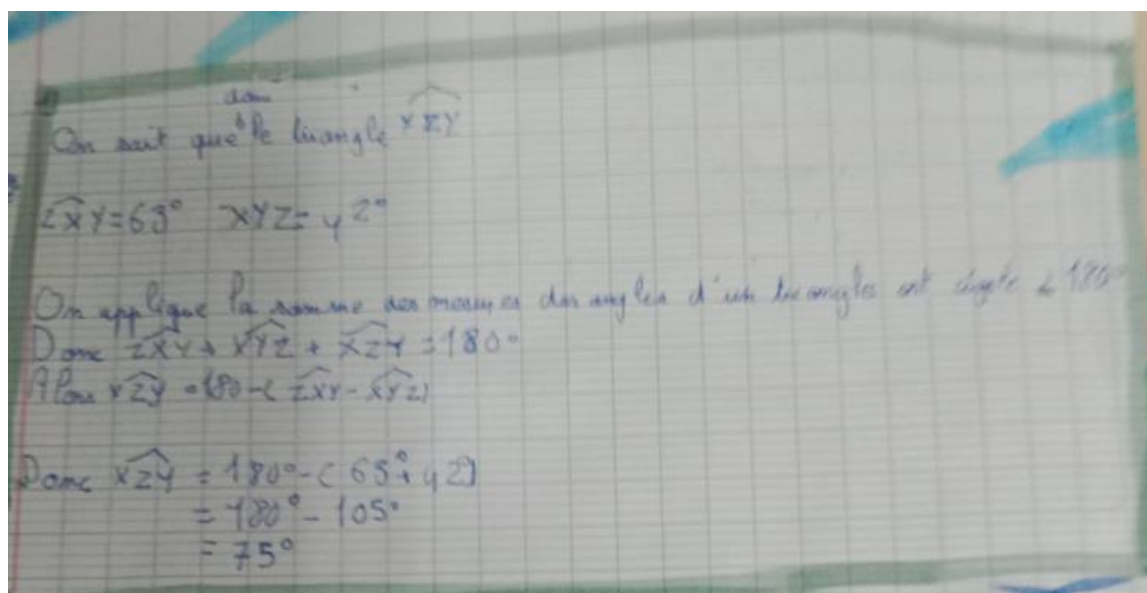 dans
On sait que le triangle XZY
ZXY=63° XYZ= 42°
On applique la somme des mesures des angles d'un triangles est égale à 180°
Donc ZXY + XYZ + XZY = 180°
Alors XZY = 180-( ZXY - XYZ)
Donc XZY = 180°-( 63°+ 42)
= 180° - 105°
= 75°